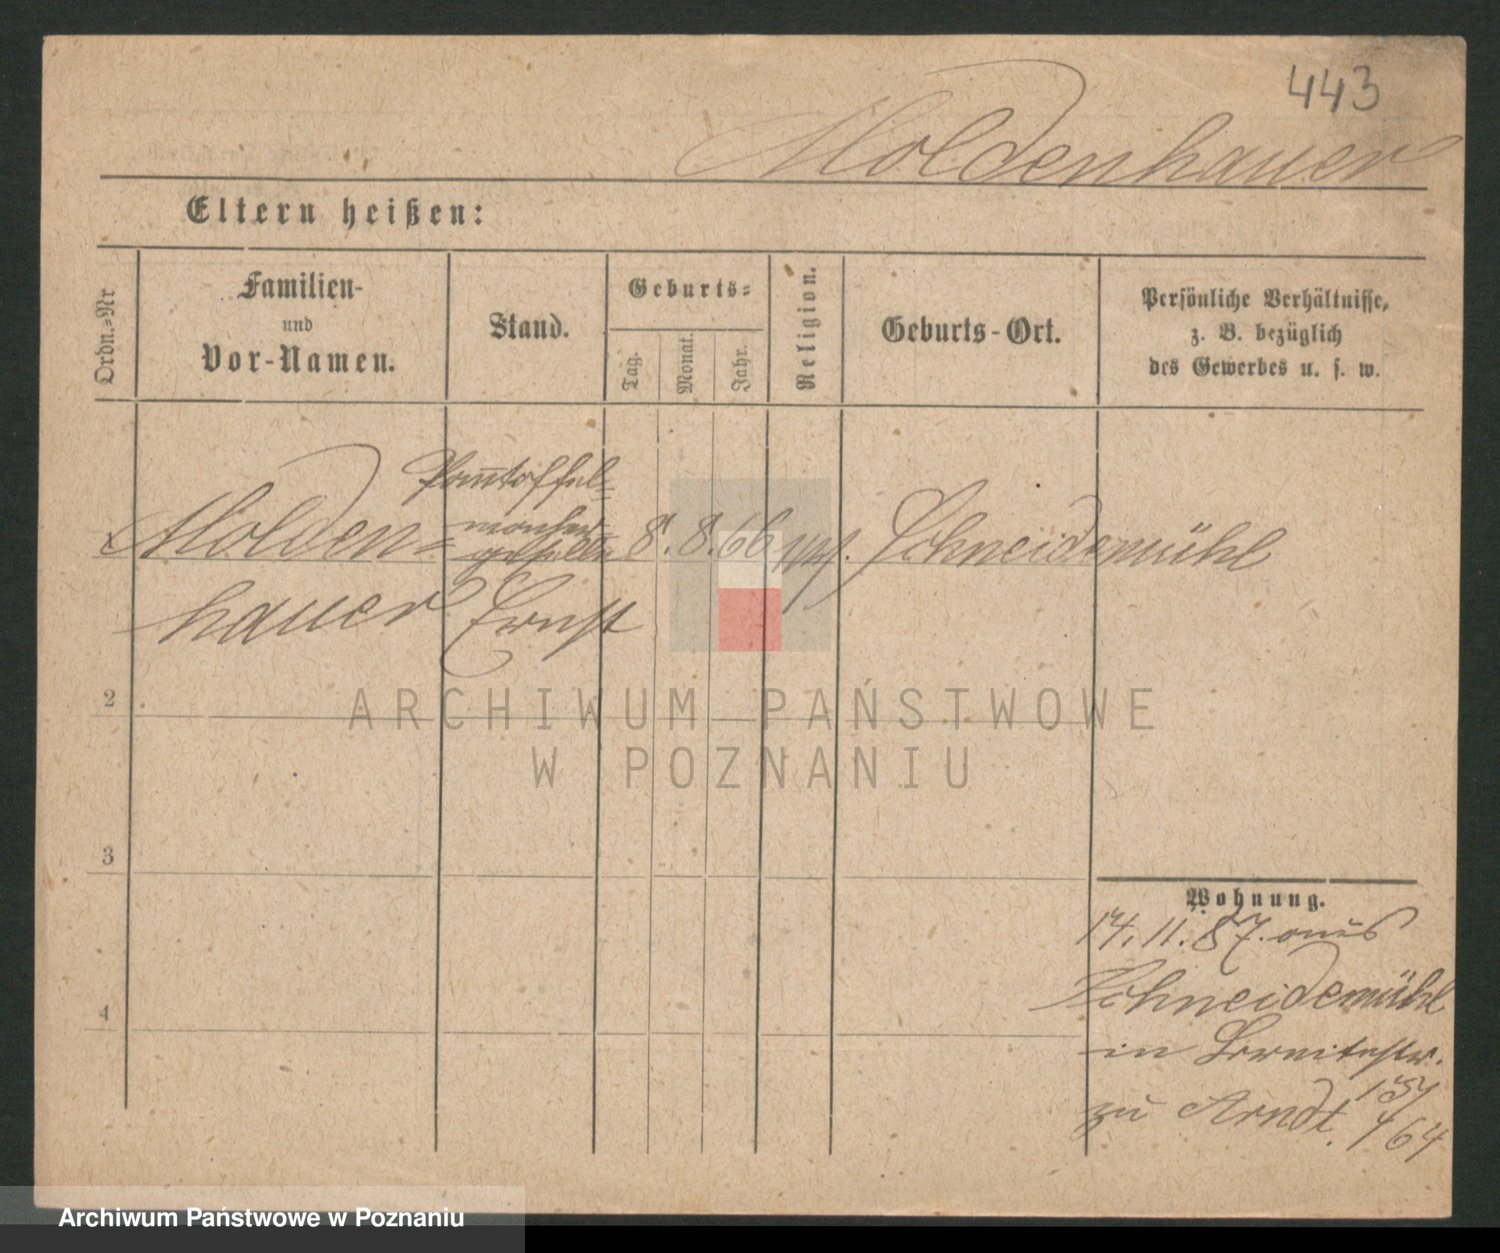 443
Moldenhauer
Eltern heißen:
Ordn.-Nr
Familien-
und
Vor-Namen.
Stand.
Geburts-
Tag.
Monat.
Jahr.
Religion.
Geburts-Ort.
Persönliche Verhältnisse,
z. B. bezüglich
des Gewerbes u. s. w.
1 Molden= Pantoffel= 8. 8. 66 Schneidemühl
macher=
geselle
hauer Ernst
2
ARCHIWUM PAŃSTWOWE
W POZNANIU
3
4
Wohnung.
14. 11. 87. aus
Schneidemühl
in Breitestr.
zu Arndt.
Archiwum Państwowe w Poznaniu